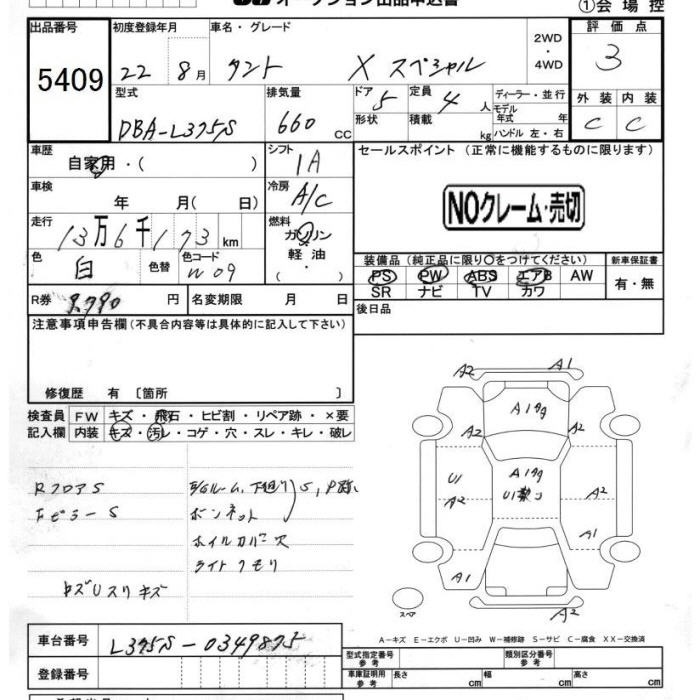 オークション出品申込書
①会場控
出品番号 初度登録年月 車名・グレード 2WD ・ 4WD 評価点
5409 22年 8月 タント X スペシャル 3
型式 排気量 ドア 5 定員 4人 ディーラー・並行 外装 内装
DBA-L375S 660 cc 形状 積載 kg モデル年式 年 ハンドル 左・右 C C
車歴 自家用・( ) シフト IA セールスポイント (正常に機能するものに限ります)
車検 年 月( 日) 冷房 A/C
NOクレーム・売切
走行 13万6千173km 燃料 ガソリン 軽油 ・ ( )
色 白 色替 色コード W09
装備品(純正品に限り○をつけてください) 新車保証書
PS PW ABS エアB AW 有・無
SR ナビ TV カワ
R券 円 名変期限 月 日 後日品
注意事項申告欄(不具合内容等は具体的に記入して下さい)
修復歴 有 〔箇所 〕
検査員 FW キズ・飛石・ヒビ割・リペア跡・×要
記入欄 内装 キズ・汚レ・コゲ・穴・スレ・キレ・破レ
RフロアS
ボンネット
ホイルカバース
ライトクモリ
A2 A1
A1
A2 A2
U1 A2
A2
A1
A1
A2
スペア
A-キズ E-エクボ U-凹み W-補修跡 S-サビ C-腐食 XX-交換済
車台番号 L375S-0349875
登録番号
型式指定番号 参考 類別区分番号 参考
車庫証明用 参考 長さ cm 幅 cm 高さ cm